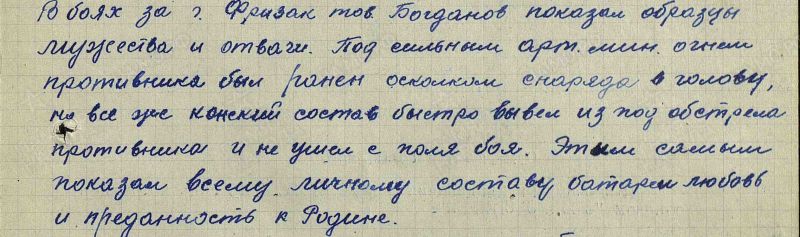 В боях за г. Фризак тов. Богданов показал образцы
мужества и отваги. Под сильным арт. мин. огнем
противника был ранен осколком снаряда в голову,
но все же конский состав быстро вывел из под обстрела
противника и не ушел с поля боя. Этим самым
показал всему личному составу батареи любовь
и преданность к Родине.